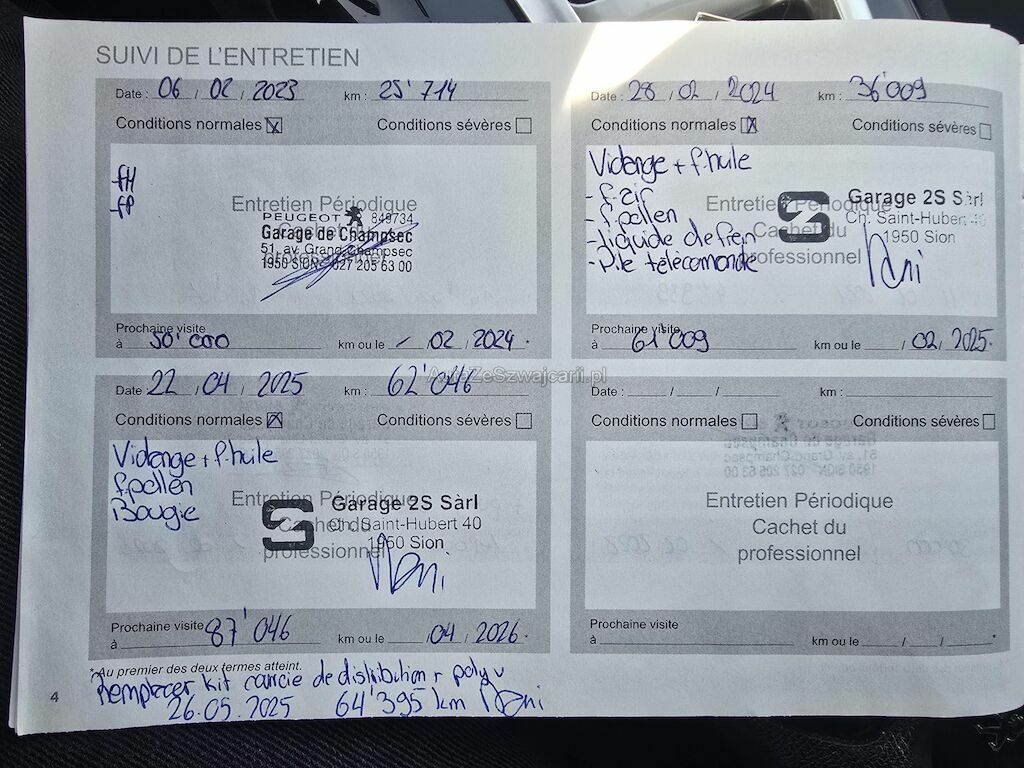 SUIVI DE L'ENTRETIEN
Date : 06 / 02 / 2023 km : 25'714
Conditions normales ☒ Conditions sévères ☐
- fH
- fP
Entretien Périodique
Cachet du
professionnel
PEUGEOT 849734
Garage de Champsec
51, av. Grand-Champsec
1950 SION - 027 205 63 00
Prochaine visite
à 50'000 km ou le - / 02 / 2024.
Date : 28 / 02 / 2024 km : 36'009
Conditions normales ☒ Conditions sévères ☐
Vidange + f.huile
- f.air
- f.pollen
- liquide de frein
- Pile télécomande
Entretien Périodique
Cachet du
professionnel
Garage 2S Sàrl
Ch. Saint-Hubert 40
1950 Sion
Prochaine visite
à 61'009 km ou le / 02 / 2025.
Date : 22 / 04 / 2025 km : 62'046
Conditions normales ☒ Conditions sévères ☐
Vidange + f.huile
f.pollen
Bougie
Entretien Périodique
Cachet du
professionnel
Garage 2S Sàrl
Ch. Saint-Hubert 40
1950 Sion
Prochaine visite
à 87'046 km ou le / 04 / 2026.
Date : / / km :
Conditions normales ☐ Conditions sévères ☐
Entretien Périodique
Cachet du
professionnel
Prochaine visite
à km ou le / / *
* Au premier des deux termes atteint.
Remplacer kit courroie de distribution + poly v
26.05.2025 64'395 km
4
AutaZeSzwajcarii.pl